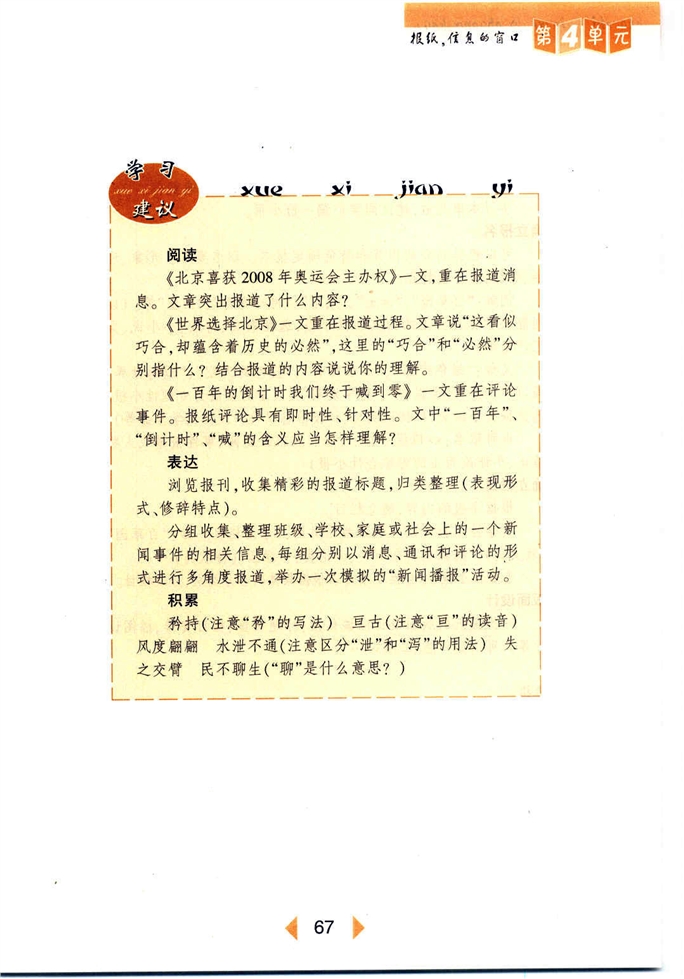 报纸,信息的窗口
第4单元
学习
xue xi jian yi
建议
xue xi jian yi
阅读
《北京喜获2008年奥运会主办权》一文,重在报道消
息。文章突出报道了什么内容?
《世界选择北京》一文重在报道过程。文章说“这看似
巧合,却蕴含着历史的必然”,这里的“巧合”和“必然”分
别指什么?结合报道的内容说说你的理解。
《一百年的倒计时我们终于喊到零》一文重在评论
事件。报纸评论具有即时性、针对性。文中“一百年”、
“倒计时”、“喊”的含义应当怎样理解?
表达
浏览报刊,收集精彩的报道标题,归类整理(表现形
式、修辞特点)。
分组收集、整理班级、学校、家庭或社会上的一个新
闻事件的相关信息,每组分别以消息、通讯和评论的形
式进行多角度报道,举办一次模拟的“新闻播报”活动。
积累
矜持(注意“矜”的写法) 亘古(注意“亘”的读音)
风度翩翩 水泄不通(注意区分“泄”和“泻”的用法) 失
之交臂 民不聊生(“聊”是什么意思?)
67